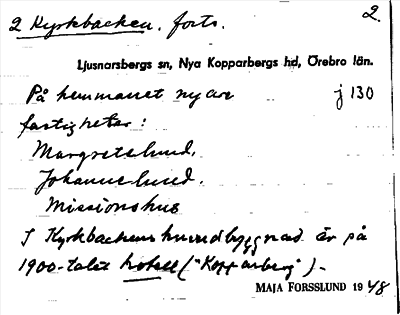 2 Kyrkbacken, forts. 2.
Ljusnarsbergs sn, Nya Kopparbergs hd, Örebro län.
På hemmanet nyare j 130
fastigheter:
Margretelund,
Johannelund.
Missionshus
I Kyrkbackens huvudbyggnad är på
1900-talet hotell ("Kopparberg").
MAJA FORSSLUND 1948